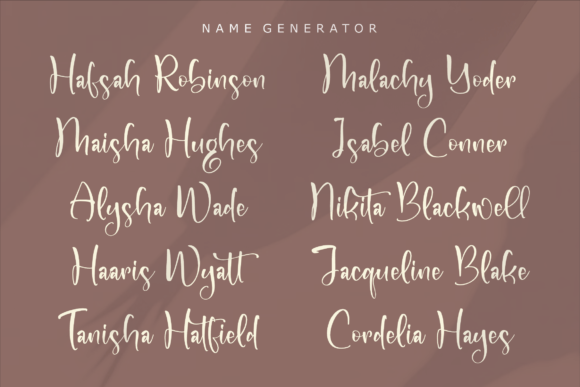 NAME GENERATOR
Hafsah Robinson
Maisha Hughes
Alysha Wade
Haaris Wyatt
Tanisha Hatfield
Malachy Yoder
Isabel Conner
Nikita Blackwell
Jacqueline Blake
Cordelia Hayes